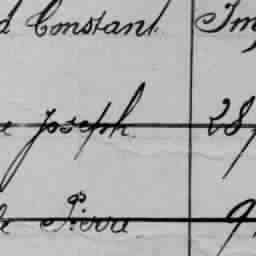 d Constant Im
e Joseph 28
le Pierre 9